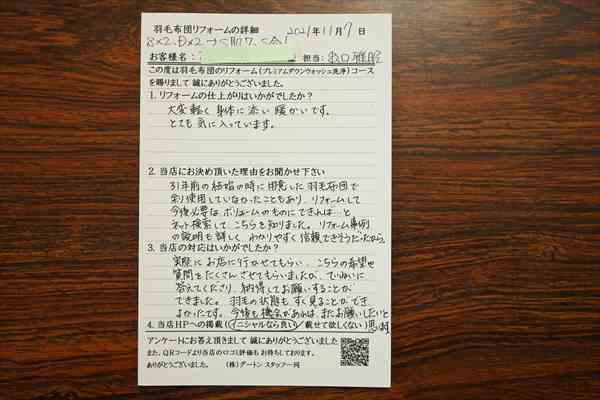 羽毛布団リフォームの詳細 2021年11月7日
お客様名： 担当：
この度は羽毛布団のリフォーム（プレミアムダウンウォッシュ洗浄）コース
を賜りまして 誠にありがとうございました。
1. リフォームの仕上がりはいかがでしたか？
大変軽く身体に添い暖かいです。
とても気に入っています。
2. 当店にお決め頂いた理由をお聞かせ下さい
31年前の結婚の時に用意した羽毛布団で
余り使用していなかったこともあり、リフォームして
今後必要なボリュームのものにできれば…と
ネット検索して、こちらを知りました。リフォーム事例
の説明も詳しく、わかりやすく信頼できそうだったから
3. 当店の対応はいかがでしたか？
実際にお店に行かせてもらい、こちらの希望や
質問をたくさんさせてもらいましたが、ていねいに
答えてくださり、納得してお願いすることが
できました。羽毛の状態もすぐ見ることができ
よかったです。今後も機会があれば、またお願いしたいと
思います
4. 当店HPへの掲載（イニシャルなら良い／載せて欲しくない）
アンケートにお答え頂きまして 誠にありがとうございました
また、QRコードより当店の口コミ評価も お待ちしております。
ありがとうございました。 （株）ダートン スタッフ一同